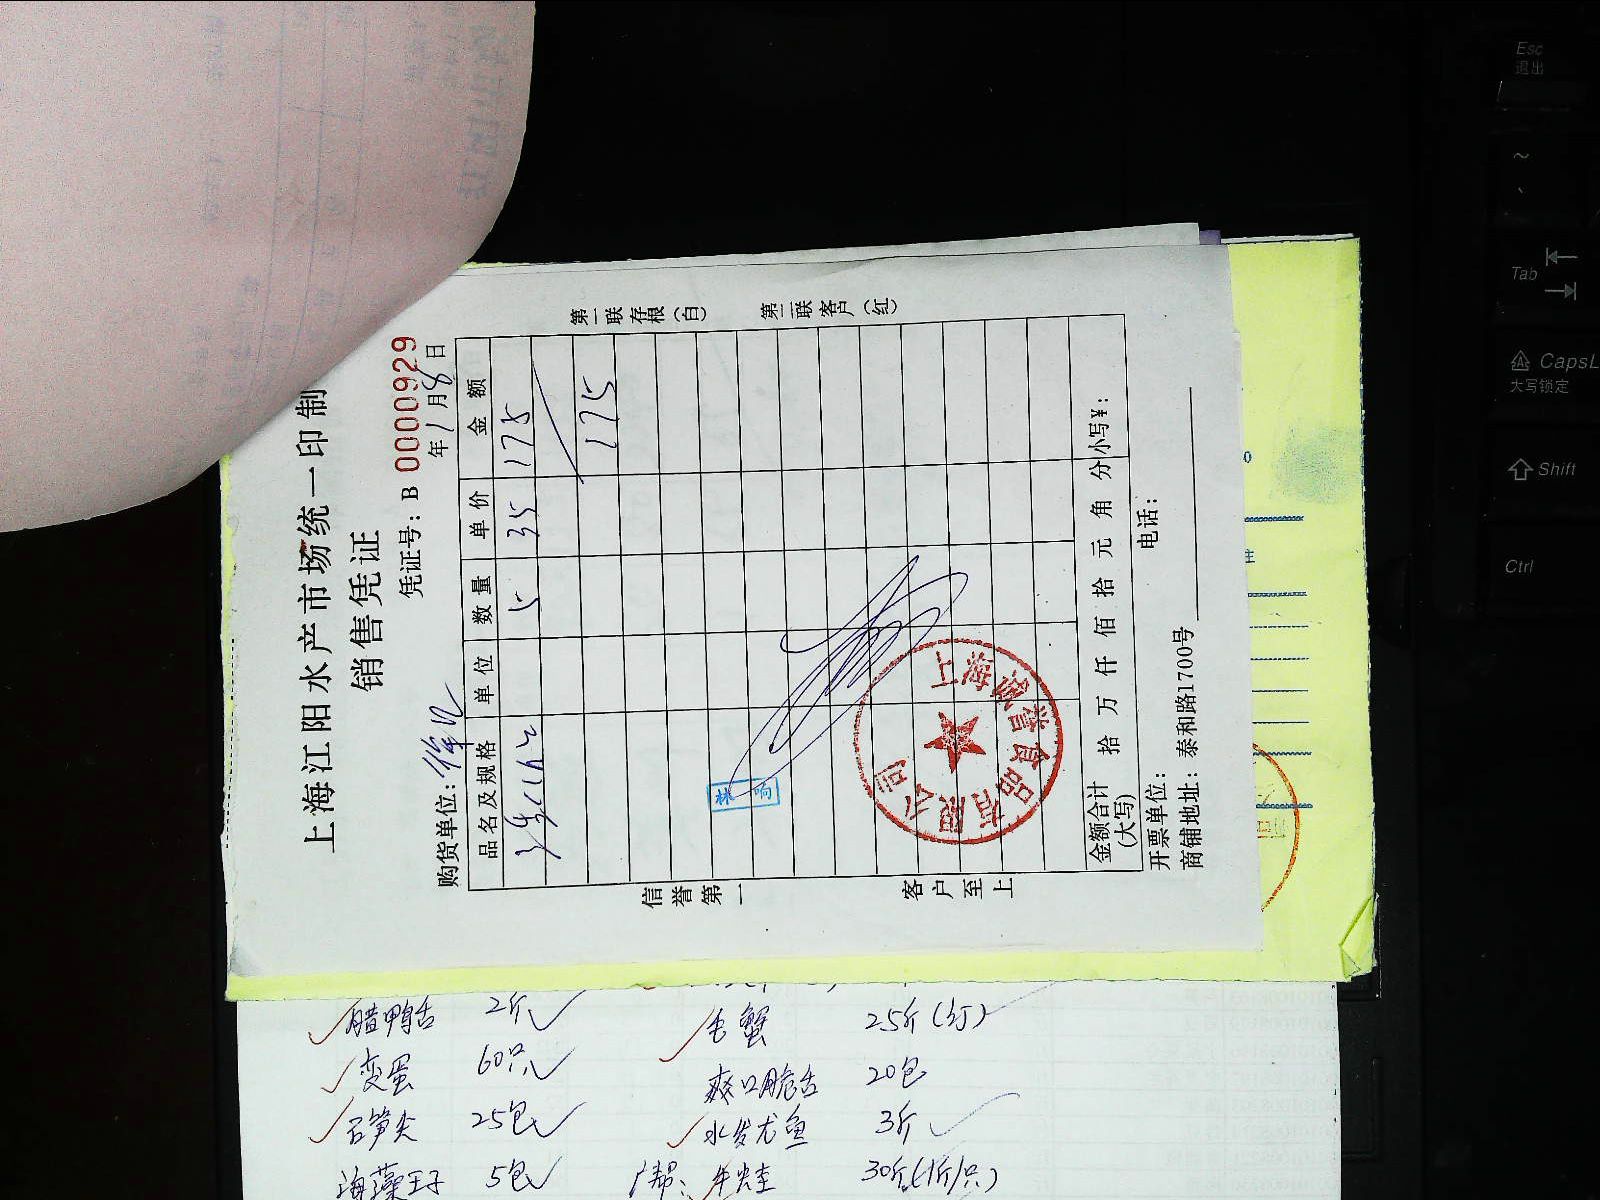 上海江阳水产市场统一印制
销售凭证
凭证号：B 0000929
购货单位：
年1月8日
品名及规格 单位 数量 单价 金额
5 35 175
175
金额合计（大写） 拾 万 仟 佰 拾 元 角 分 小写¥：
开票单位： 电话：
商铺地址：泰和路1700号
第一联存根（白）
第二联客户（红）
信誉第一
客户至上
食品有限公司
腊鸭舌 2斤
毛蟹 25斤
变蛋 60只
爽口脆舌 20包
石笋尖 25包
水发尤鱼 3斤
海藻王子 5包
牛蛙 30斤(1斤/只)
Esc
退出
~
Tab
CapsL
大写锁定
Shift
Ctrl